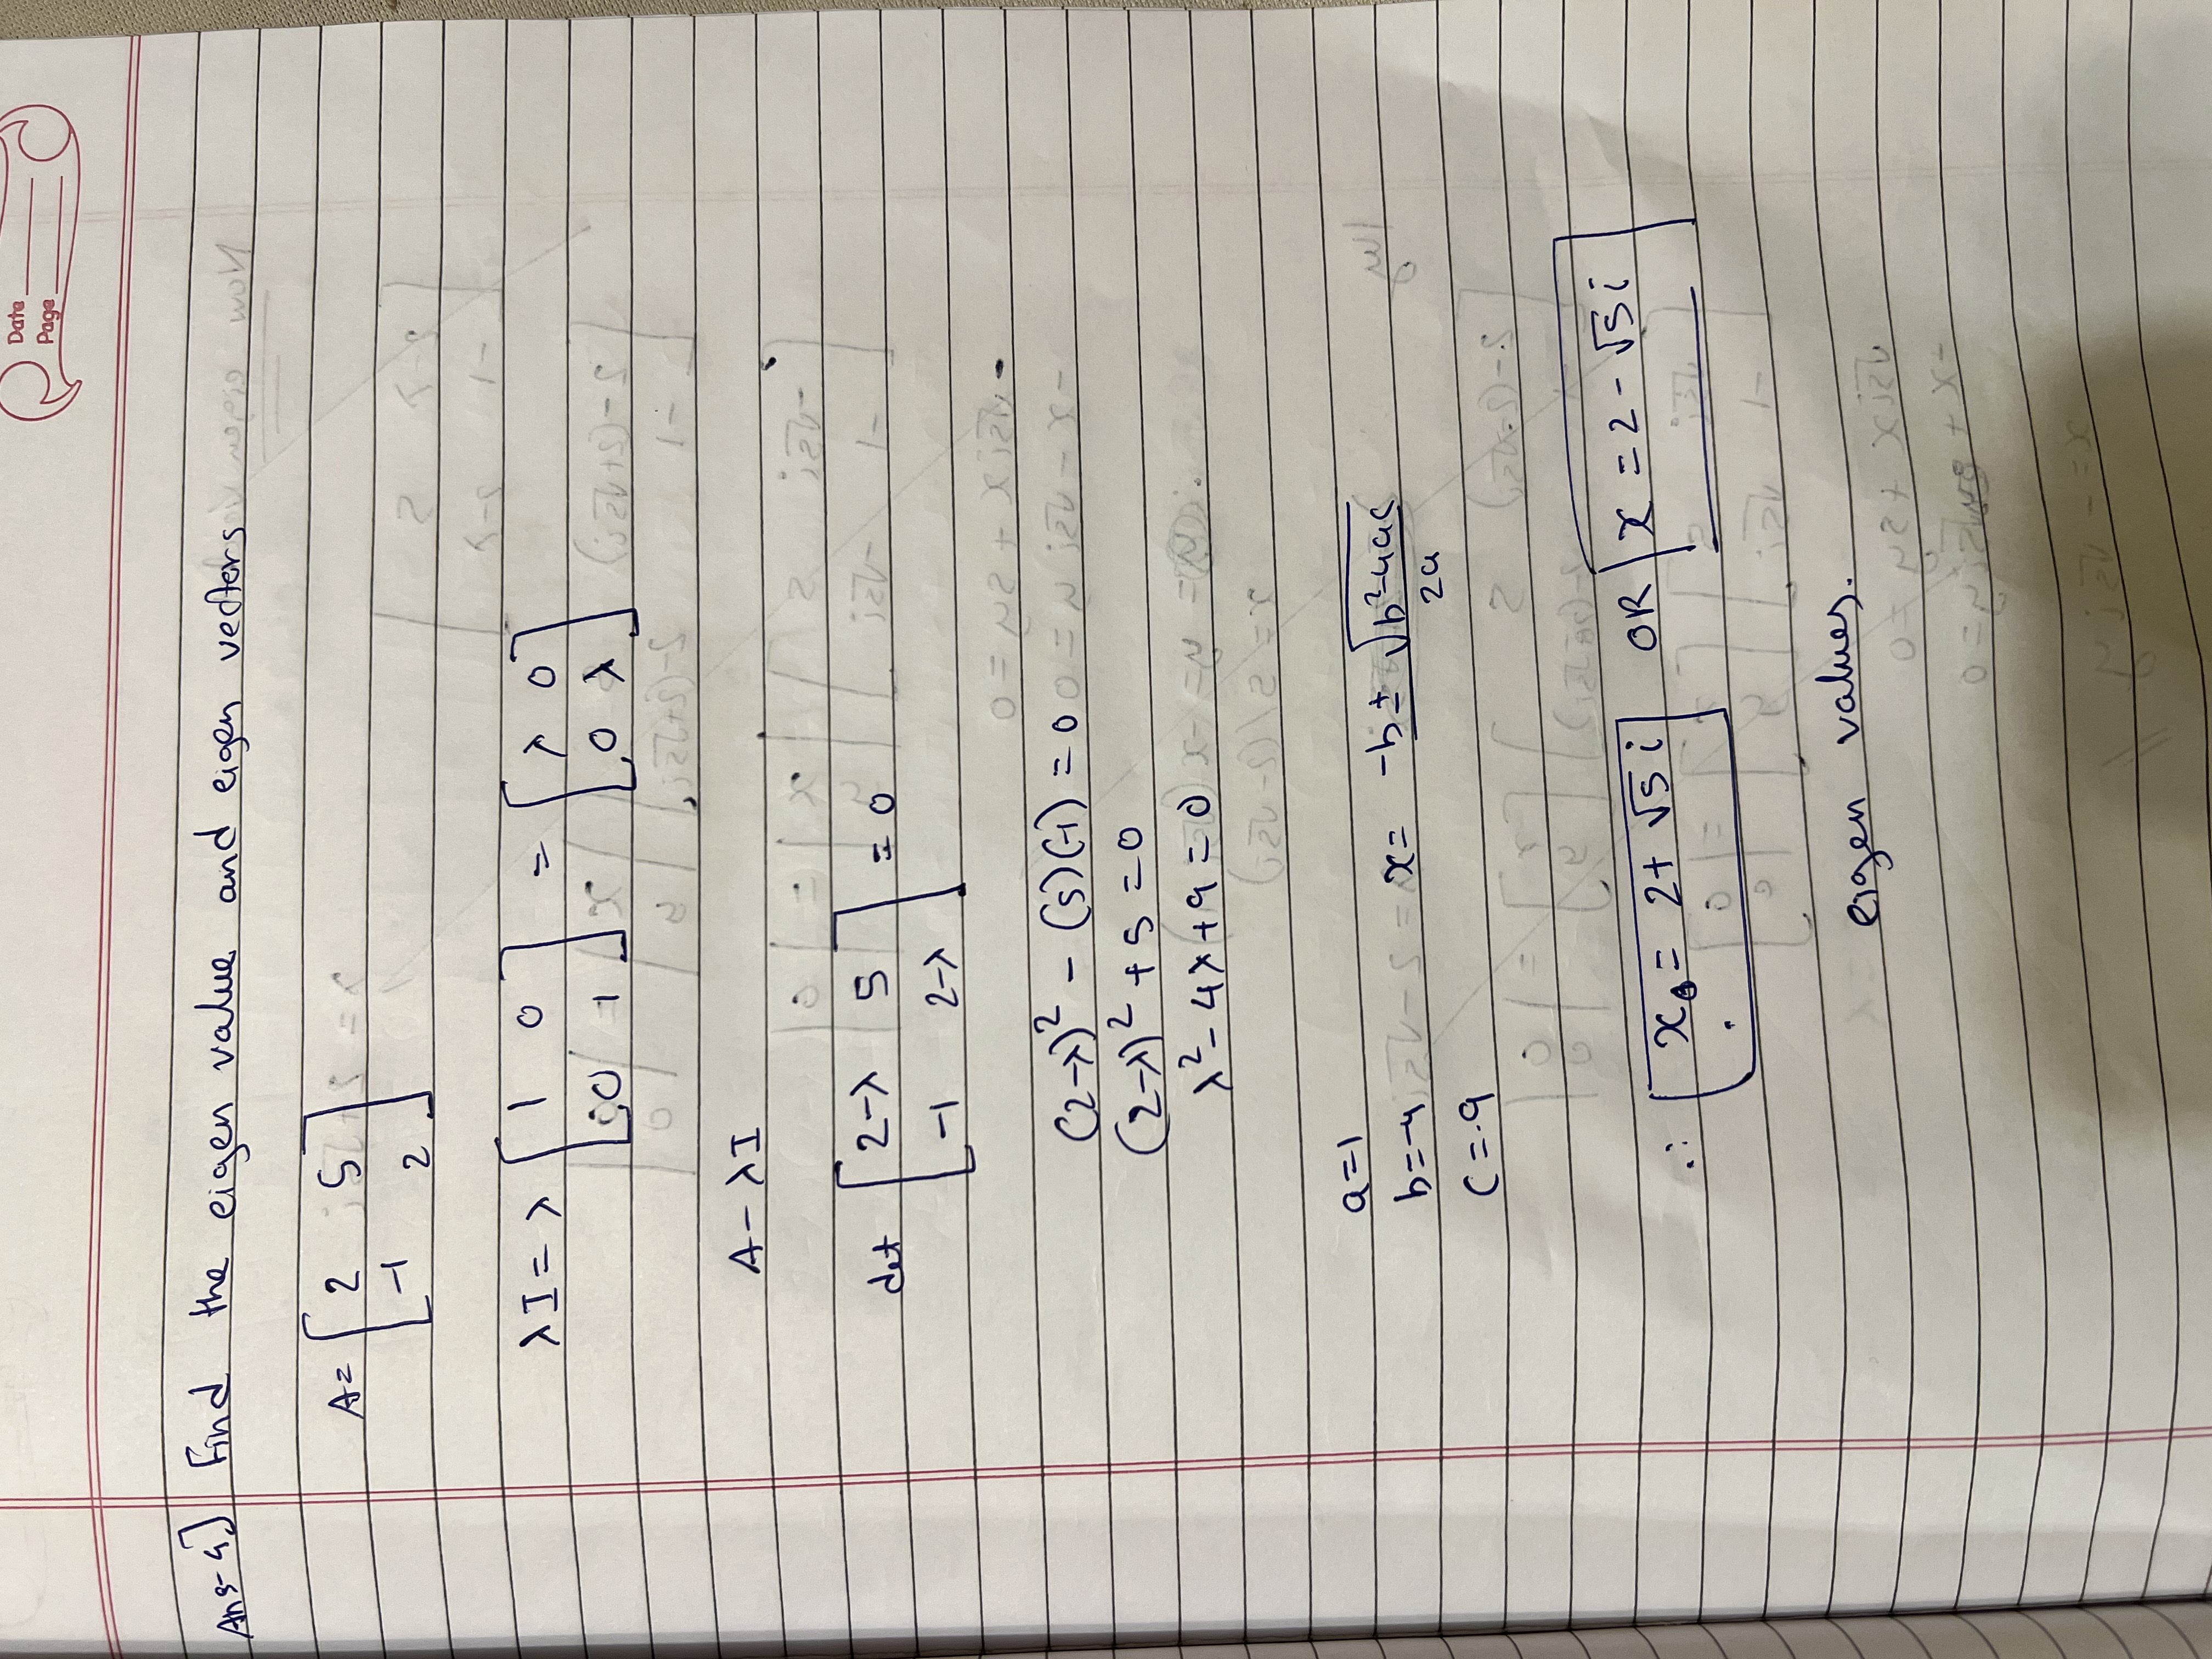 Date
Page
Ans-4] Find the eigen value and eigen vectors
A = [ 2 5
-1 2 ]
λI = λ [ 1 0
0 1 ] = [ λ 0
0 λ ]
A - λI
det [ 2-λ 5
-1 2-λ ] = 0
(2-λ)² - (5)(-1) = 0
(2-λ)² + 5 = 0
λ² - 4λ + 9 = 0
a = 1
b = -4 x = -b ± √b²-4ac / 2a
c = 9
∴ x = 2 + √5 i OR x = 2 - √5 i
eigen values.